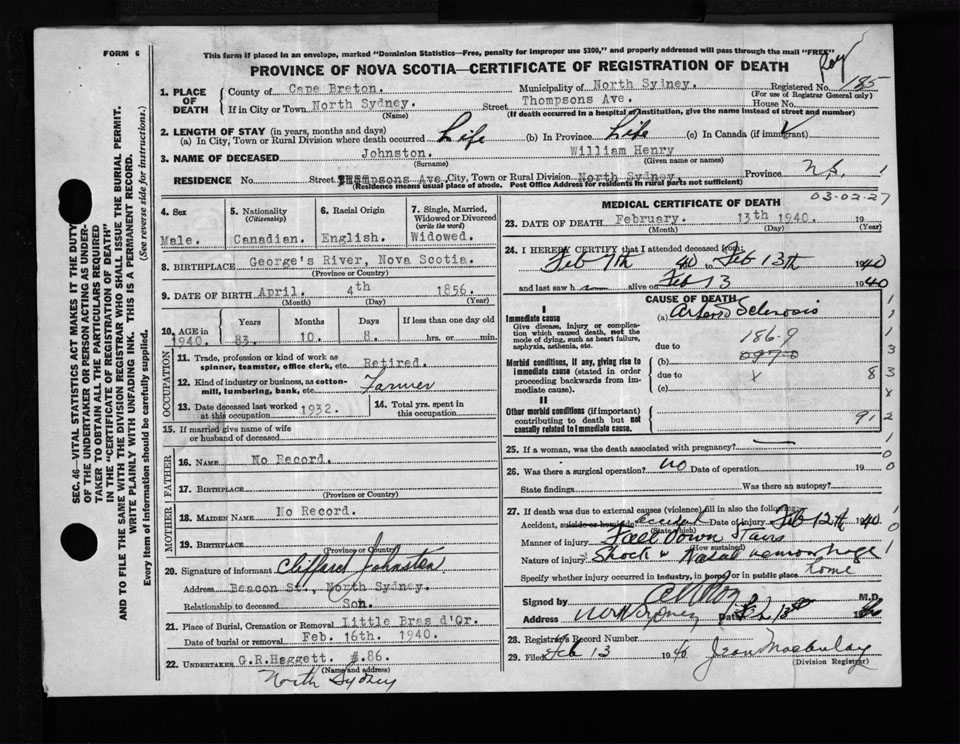 FORM 6
This form if placed in an envelope, marked "Dominion Statistics—Free, penalty for improper use $300," and properly addressed will pass through the mail "FREE"
PROVINCE OF NOVA SCOTIA—CERTIFICATE OF REGISTRATION OF DEATH
1. PLACE OF DEATH
County of Cape Breton. Municipality of North Sydney. Registered No. 185
(For use of Registrar General only)
If in City or Town North Sydney. Street Thompsons Ave. House No.
(Name) (If death occurred in a hospital or institution, give the name instead of street and number)
2. LENGTH OF STAY (in years, months and days)
(a) In City, Town or Rural Division where death occurred Life (b) In Province Life (c) In Canada (if immigrant)
3. NAME OF DECEASED Johnston. William Henry
(Surname) (Given name or names)
RESIDENCE No. Street Thompsons Ave. City, Town or Rural Division North Sydney. Province N.S. 1
(Residence means usual place of abode. Post Office Address for residents in rural parts not sufficient)
03-02-27
4. Sex
Male.
5. Nationality
(Citizenship)
Canadian.
6. Racial Origin
English.
7. Single, Married, Widowed or Divorced
(write the word)
Widowed.
8. BIRTHPLACE George's River, Nova Scotia.
(Province or Country)
9. DATE OF BIRTH April. 4th 1856.
(Month) (Day) (Year)
10. AGE in 1940.
Years Months Days If less than one day old
83. 10. 8. hrs. or min.
OCCUPATION
11. Trade, profession or kind of work as spinner, teamster, office clerk, etc. Retired.
12. Kind of industry or business, as cotton-mill, lumbering, bank, etc. Farmer
13. Date deceased last worked at this occupation 1932.
14. Total yrs. spent in this occupation
15. If married give name of wife or husband of deceased
FATHER
16. NAME No Record.
17. BIRTHPLACE
(Province or Country)
MOTHER
18. MAIDEN NAME No Record.
19. BIRTHPLACE
(Province or Country)
20. Signature of informant Clifford Johnston
Address Beacon St., North Sydney.
Relationship to deceased Son.
21. Place of Burial, Cremation or Removal Little Bras d'Or.
Date of burial or removal Feb. 16th. 1940.
22. UNDERTAKER G.R.Haggett. #.86.
(Name and address)
North Sydney
MEDICAL CERTIFICATE OF DEATH
23. DATE OF DEATH February. 13th 1940. 19
(Month) (Day) (Year)
24. I HEREBY CERTIFY that I attended deceased from
Feb 7th 40 to Feb 13th 1940
and last saw h alive on Feb 13 1940
CAUSE OF DEATH
I
Immediate cause (a) Arterio Sclerosis
Give disease, injury or complication which caused death, not the mode of dying, such as heart failure, asphyxia, asthenia, etc.
due to 186-9
Morbid conditions, if any, giving rise to immediate cause (stated in order proceeding backwards from immediate cause).
(b)
due to x 8
(c)
II
Other morbid conditions (if important) contributing to death but not causally related to immediate cause.
91
25. If a woman, was the death associated with pregnancy?
26. Was there a surgical operation? no Date of operation 19
State findings Was there an autopsy?
27. If death was due to external causes (violence) fill in also the following:
Accident, suicide or homicide accident Date of injury Feb 12th 1940
(State which)
Manner of injury Fall Down Stairs
(How sustained)
Nature of injury Shock & Nasal Hemorrhage
Specify whether injury occurred in industry, in home or in public place home
Signed by M.D.
Address North Sydney Date Feb 13th 19
28. Registrar's Record Number
29. Filed Feb 13 1940 Jean Macaulay
(Division Registrar)
SEC. 46—VITAL STATISTICS ACT MAKES IT THE DUTY
OF THE UNDERTAKER OR PERSON ACTING AS UNDER-
TAKER TO OBTAIN ALL THE PARTICULARS REQUIRED
IN THE "CERTIFICATE OF REGISTRATION OF DEATH"
AND TO FILE THE SAME WITH THE DIVISION REGISTRAR WHO SHALL ISSUE THE BURIAL PERMIT.
WRITE PLAINLY WITH UNFADING INK. THIS IS A PERMANENT RECORD.
Every item of information should be carefully supplied. (See reverse side for instructions.)